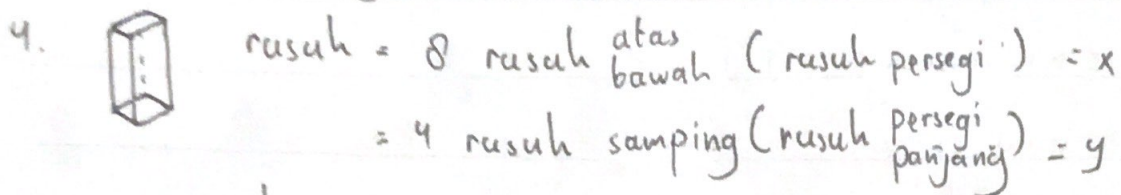 4. rusuk = 8 rusuk atas bawah ( rusuk persegi ) = x
= 4 rusuk samping ( rusuk persegi panjang ) = y